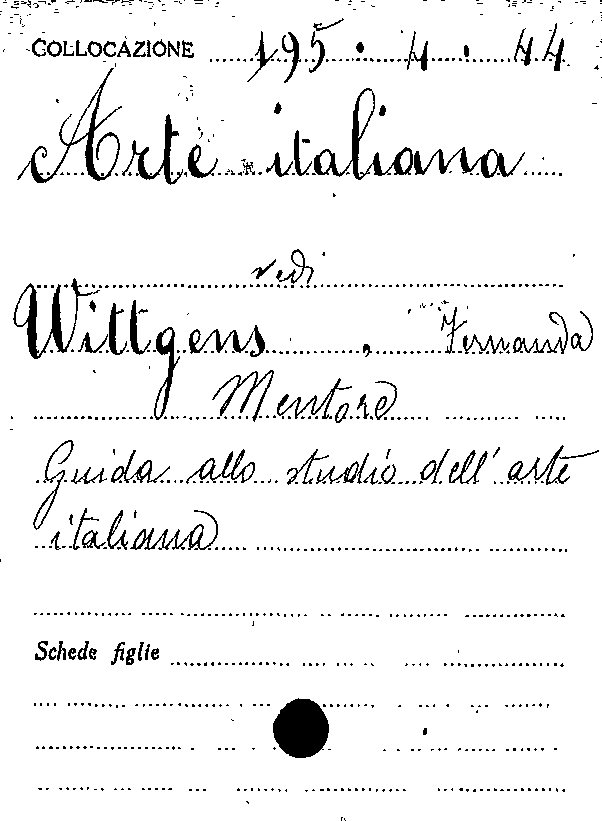 COLLOCAZIONE 195.4.44
Arte italiana
vedi
Wittgens, Fernanda
Mentore
Guida allo studio dell'arte
italiana
Schede figlie